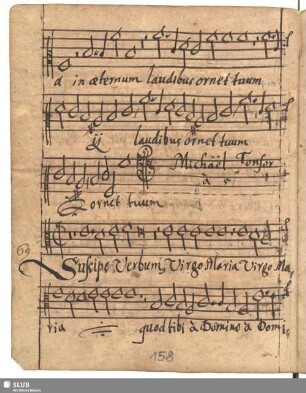 a in æternum laudibus ornet tuum
ij laudibus ornet tuum
Michaël Tonsor
ornet tuum
69
Suscipe Verbum, Virgo Maria Virgo Ma,
ria quod tibi à Domino à Domi,
158
SLUB